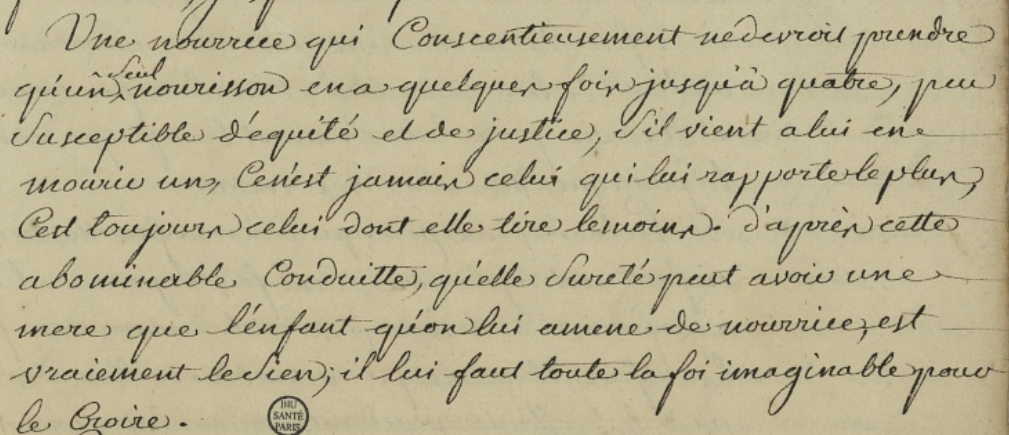 Une nourrice qui Conscentieusement nedevroit prendre
qu'un seul nourisson ena quelques fois jusqu'à quatre, peu
Susceptible d'equité et de justice, S'il vient a lui en
mourir un, Cen'est jamais celui qui lui rapporte le plus,
C'est toujours celui dont elle tire lemoins. d'après cette
abominable Conduitte, qu'elle Sureté peut avoir une
mere que l'énfant qu'on lui amene de nourrice, est
vraiement le Sien; il lui faut toute la foi imaginable pour
le Croire.
BIU
SANTÉ
PARIS